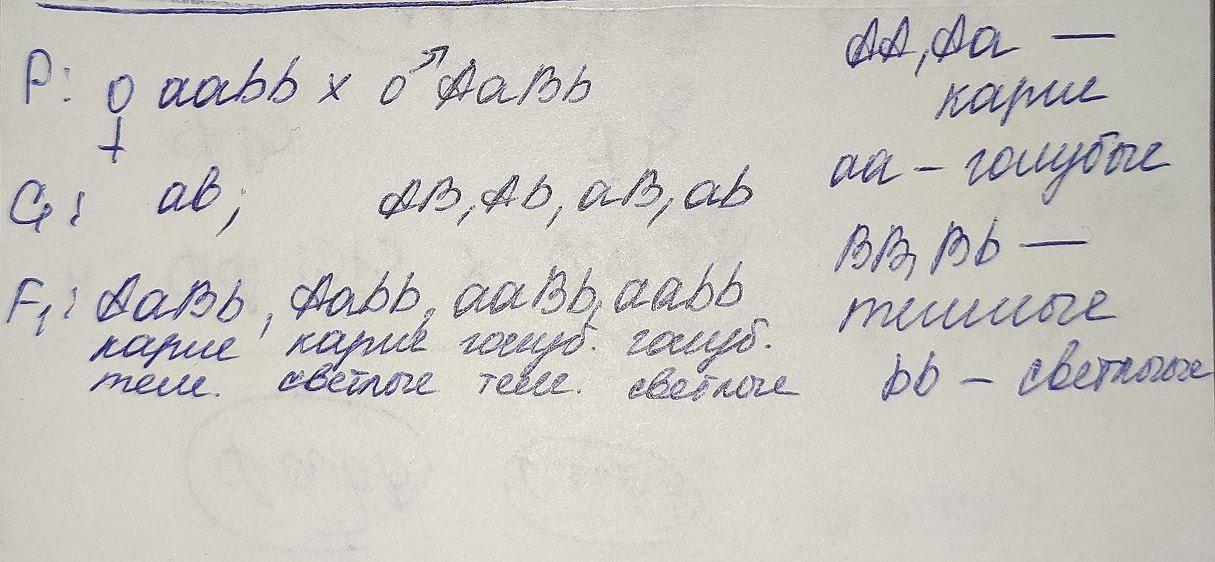 P: ♀ aabb x ♂ AaBb
G: ab; AB, Ab, aB, ab
F₁: AaBb, Aabb, aaBb, aabb
карие карие голуб. голуб.
тем. светлые тем. светлые
AA, Aa —
карие
aa – голубые
BB, Bb —
темные
bb – светлые